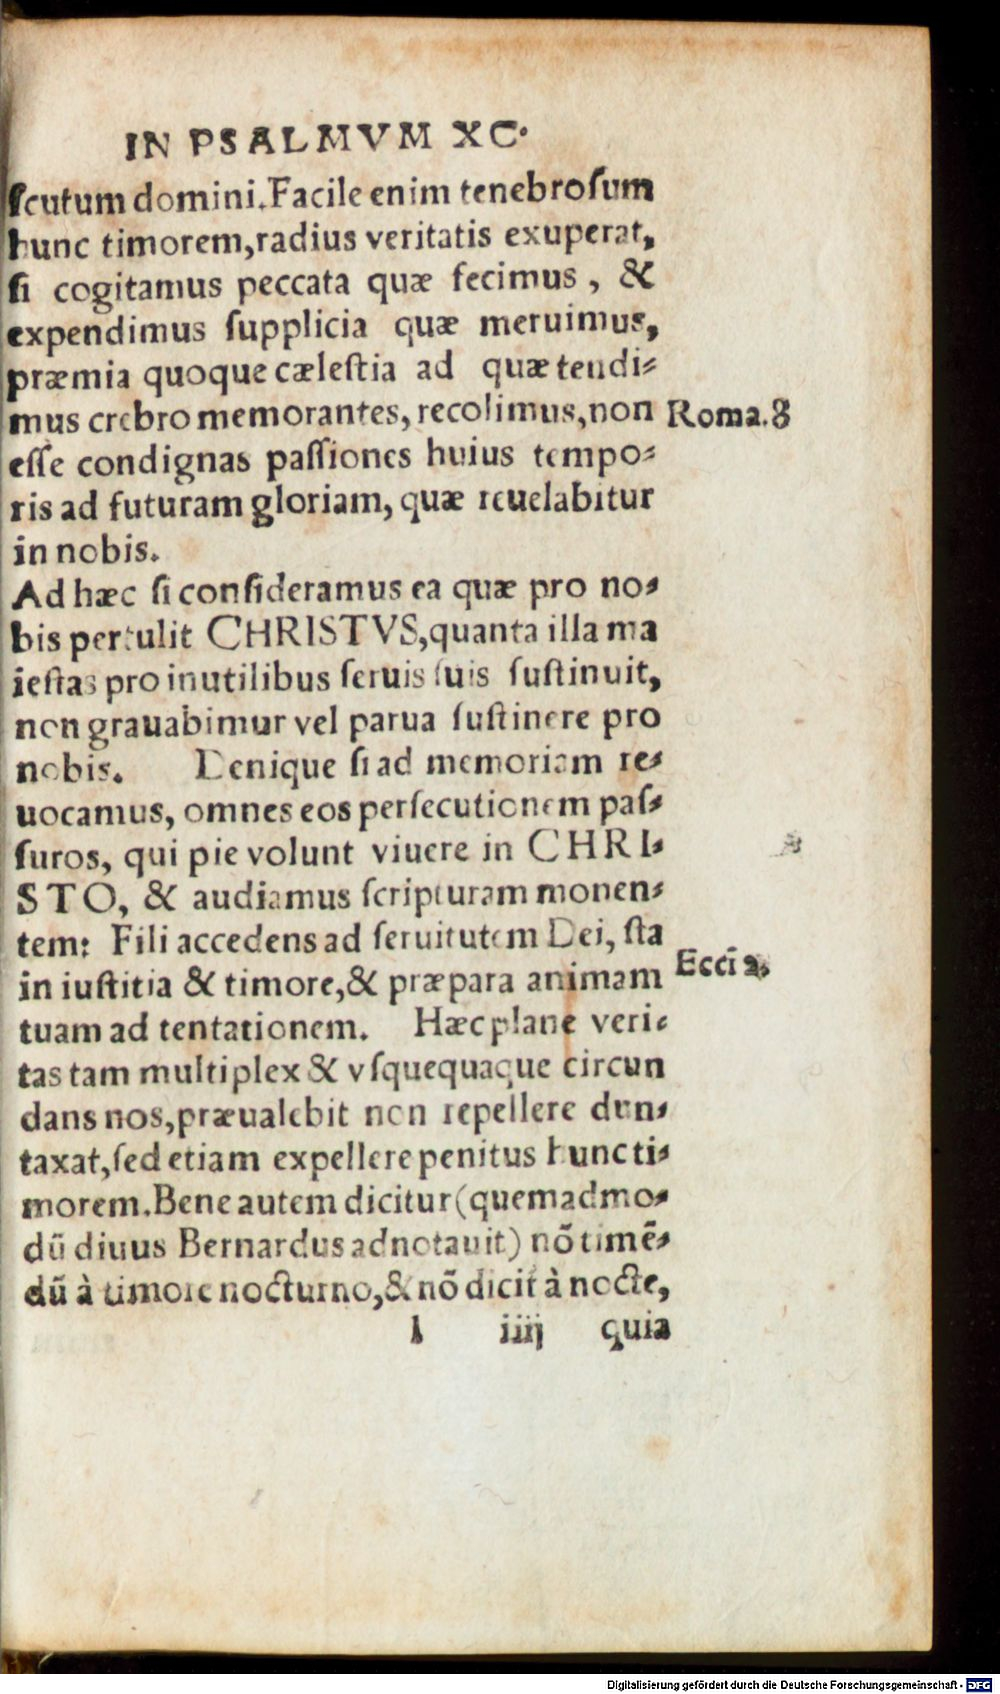 IN PSALMVM XC.
ſcutum domini. Facile enim tenebroſum
hunc timorem, radius veritatis exuperat,
ſi cogitamus peccata quæ fecimus, &
expendimus ſupplicia quæ meruimus,
præmia quoque cæleſtia ad quæ tendi⸗
mus crebro memorantes, recolimus, non
Roma. 8
eſſe condignas paſſiones huius tempo⸗
ris ad futuram gloriam, quæ reuelabitur
in nobis.
Ad hæc ſi conſideramus ea quæ pro no⸗
bis pertulit CHRISTVS, quanta illa ma
ieſtas pro inutilibus ſeruis ſuis ſuſtinuit,
non grauabimur vel parua ſuſtinere pro
nobis. Denique ſi ad memoriam re⸗
uocamus, omnes eos perſecutionem paſ⸗
ſuros, qui pie volunt viuere in CHRI⸗
STO, & audiamus ſcripturam monen⸗
tem: Fili accedens ad ſeruitutem Dei, ſta
Eccĩ 2.
in iuſtitia & timore, & præpara animam
tuam ad tentationem. Hæc plane veri⸗
tas tam multiplex & vſquequaque circun
dans nos, præualebit non repellere dun⸗
taxat, ſed etiam expellere penitus hunc ti⸗
morem. Bene autem dicitur (quemadmo⸗
dũ diuus Bernardus adnotauit) nõ timẽ⸗
dũ à timore nocturno, & nõ dicit à nocte,
l iiij quia
Digitalisierung gefördert durch die Deutsche Forschungsgemeinschaft - DFG